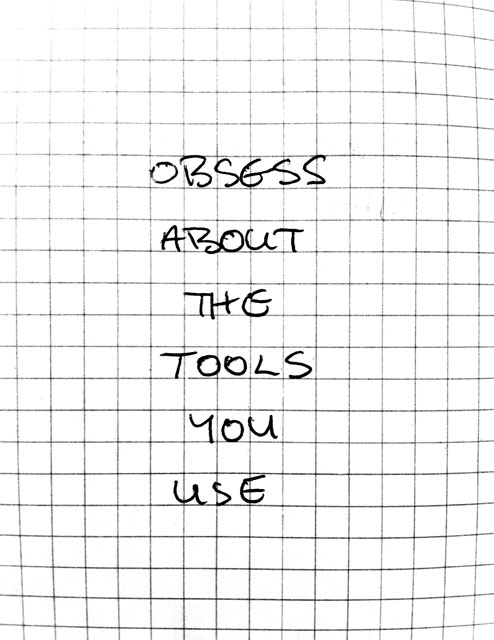 OBSESS
ABOUT
THE
TOOLS
YOU
USE